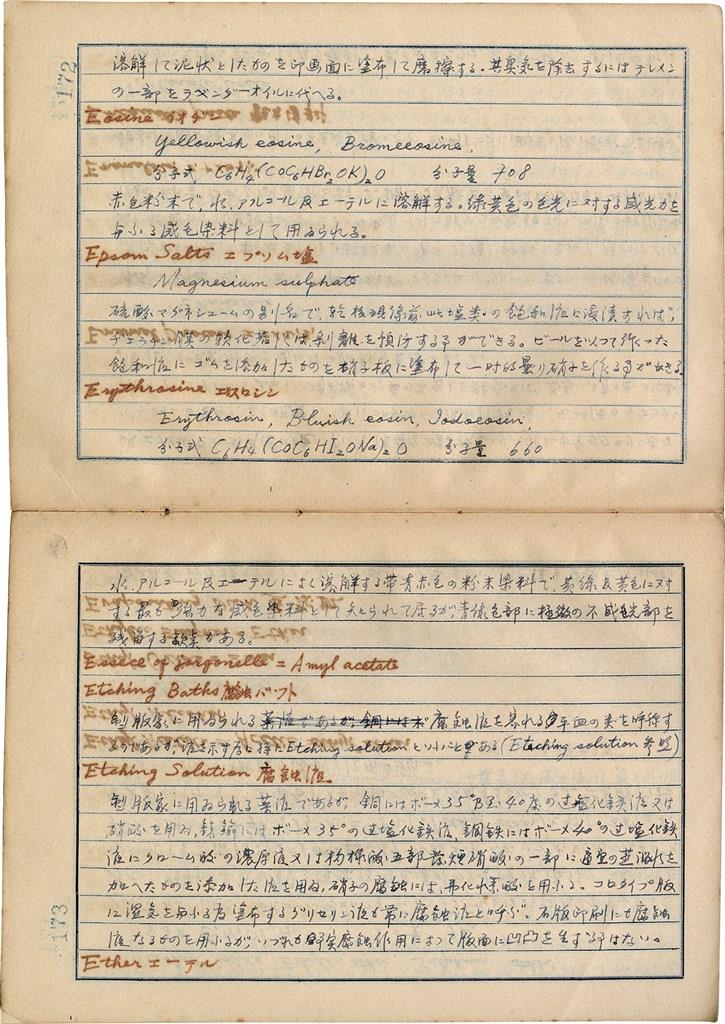 172
溶解して泥状としたものを印画面に塗布して磨擦する。其臭気を除去するにはテレメン
の一部をラベンダーオイルに代へる。
Eosine
Yellowish eosine, Bromeeosine,
分子式 C6H4(COC6HBr2OK)2O 分子量 708
赤色粉末で、水、アルコール及エーテルに溶解する。緑黄色の色光に対する感光力を
与ふる感色染料として用ゐられる。
Epsom Salts エプソム塩
Magnesium sulphate
硫酸マグネシュームの別名で、乾板現像前此塩類の飽和液に浸漬すれば、
膜の軟化若くは剥離を預防する事ができる。ビールを以って作った
飽和液にゴムを添加したものを硝子板に塗布して一時的曇り硝子を作る事ができる
Erythrosine エリスロシン
Erythrosin, Bluish eosin, Iodoeosin,
分子式 C6H4(COC6HI2ONa)2O 分子量 660
水、アルコール及エーテルによく溶解する帯青赤色の粉末染料で、黄緑及黄色に対
する最も強力な感色染料として知られて居るが、青緑色部に極微の不感色部を
残留する欠点がある。
Essece of Jargonelle = Amyl acetate
Etching Baths 腐蝕バット
製版家に用ゐられる 薬液であるが、銅には 腐蝕液を容れる平皿の類を呼称す
るのであるが、液を示す為に特に Etching solution といふことがある (Etaching solution 参照)
Etching Solution 腐蝕液
製版家に用ゐられる薬液であるが 銅にはボーメ35°乃至40度の过塩化鉄液又は
硝酸を用ゐ、 にはボーメ35°の过塩化鉄液、鋼鉄にはボーメ40°の过塩化鉄
液にクローム酸の濃厚液又は枸櫞酸五部 硝酸の一部に適宜の蒸溜水を
加へたものを添加した液を用ゐ、硝子の腐蝕には、弗化水素酸を用ふる。コロタイプ版
に湿気を与ふる為塗布するグリセリン液も常に腐蝕液と呼ぶ。石版印刷にも腐蝕
液なるものを用ふるが、いづれも 実腐蝕作用によって版面に凹凸を生ずる事はない。
Ether エーテル
173